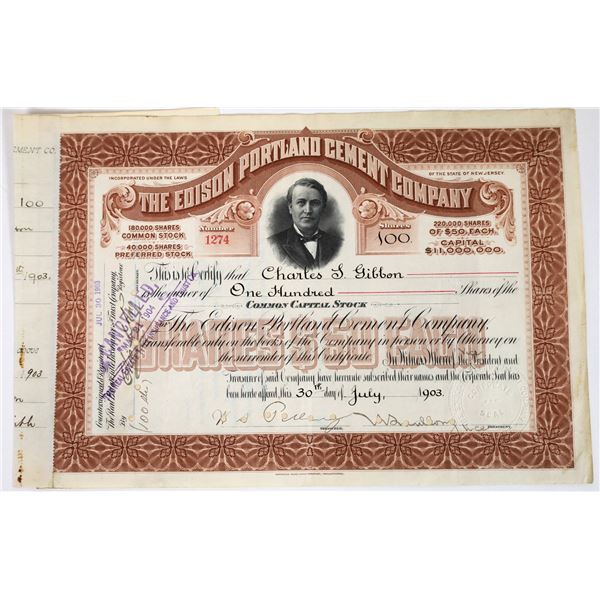 EMENT CO.
100
1903.
1903
THE EDISON PORTLAND CEMENT COMPANY
INCORPORATED UNDER THE LAWS
OF THE STATE OF NEW JERSEY.
180,000 SHARES
COMMON STOCK
40,000 SHARES
PREFERRED STOCK
Number
1274
Shares
100.
220,000 SHARES
OF $50. EACH.
CAPITAL
$11,000,000.
This is to Certify that Charles S. Gibbon
is the owner of One Hundred Shares of the
COMMON CAPITAL STOCK
The Edison Portland Cement Company,
SHARES $50 EACH
Transferable only on the books of the Company in person or by Attorney on
the surrender of this Certificate. In Witness Whereof, the President and
Treasurer of said Company have hereunto subscribed their names and the Corporate Seal has
been hereto affixed, this 30th day of July, 1903.
TREASURER.
PRESIDENT.
SEAL
Countersigned & Registered
JUL 30 1903
Registrar
By
(100 shs)